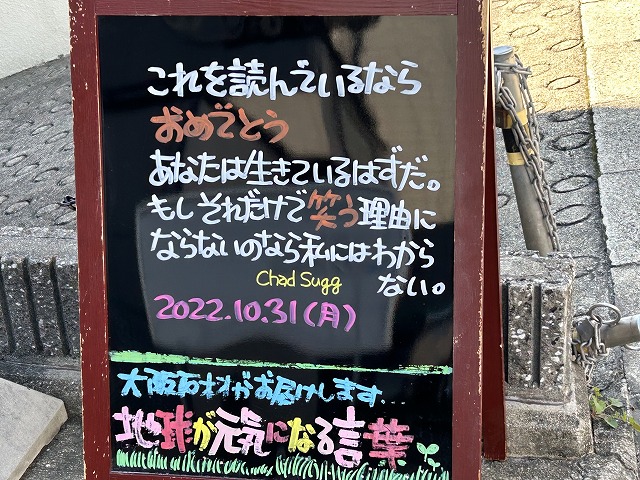 これを読んでいるなら
おめでとう
あなたは生きているはずだ。
もしそれだけで笑う理由に
ならないのなら私にはわから
ない。
Chad Sugg
2022.10.31(月)
大阪石材がお届けします...
地球が元気になる言葉